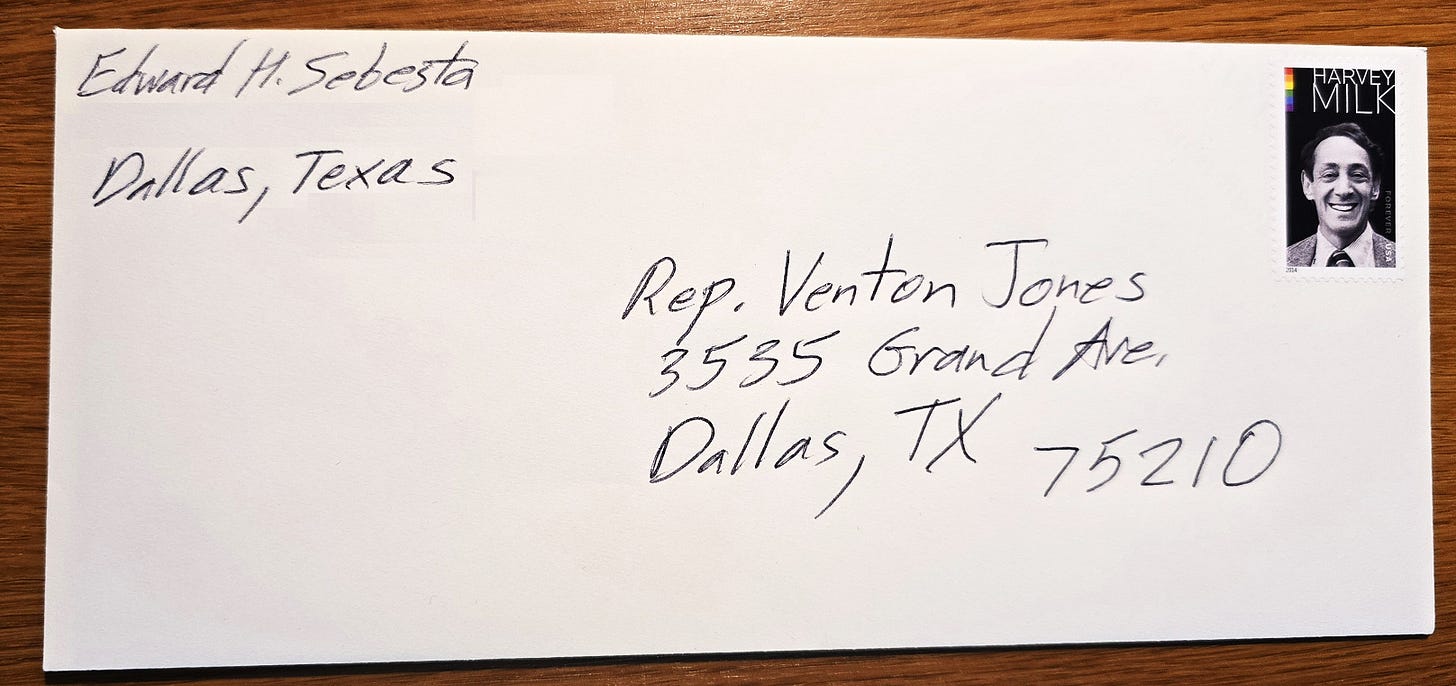 Edward H. Sebesta
Dallas, Texas
HARVEY
MILK
FOREVER USA
2014
Rep. Venton Jones
3535 Grand Ave.
Dallas, TX 75210